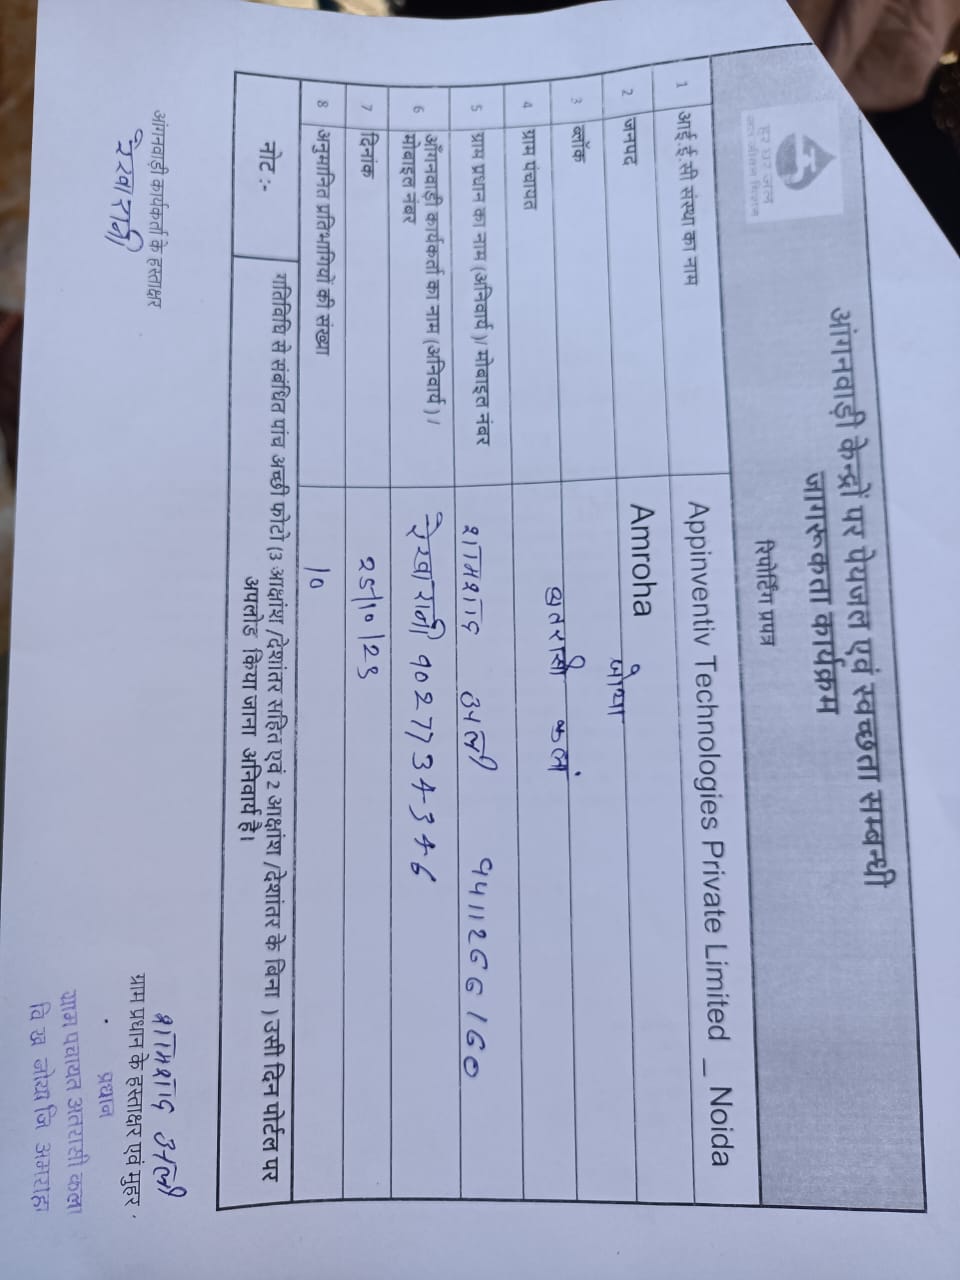 हर घर जल
जल जीवन मिशन
आंगनवाड़ी केन्द्रों पर पेयजल एवं स्वच्छता सम्बन्धी
जागरूकता कार्यक्रम
रिपोर्टिंग प्रपत्र
1 आई.ई.सी संस्था का नाम Appinventiv Technologies Private Limited _ Noida
2 जनपद Amroha
3 ब्लॉक जोया
4 ग्राम पंचायत अतरासी कलां
5 ग्राम प्रधान का नाम (अनिवार्य )/ मोबाइल नंबर शमशाद अली 9411266160
6 आँगनवाड़ी कार्यकर्ता का नाम (अनिवार्य ) / मोबाइल नंबर रेखा रानी 9027734346
7 दिनांक 25/10/23
8 अनुमानित प्रतिभागियों की संख्या 10
नोट :- गतिविधि से संबंधित पांच अच्छी फोटो (3 आक्षांश /देशांतर सहित एवं 2 आक्षांश /देशांतर के बिना ) उसी दिन पोर्टल पर
अपलोड किया जाना अनिवार्य है।
आंगनवाड़ी कार्यकर्ता के हस्ताक्षर
रेखा रानी
शमशाद अली
ग्राम प्रधान के हस्ताक्षर एवं मुहर
प्रधान
ग्राम पंचायत अतरासी कला
वि ख जोया जि अमरोहा